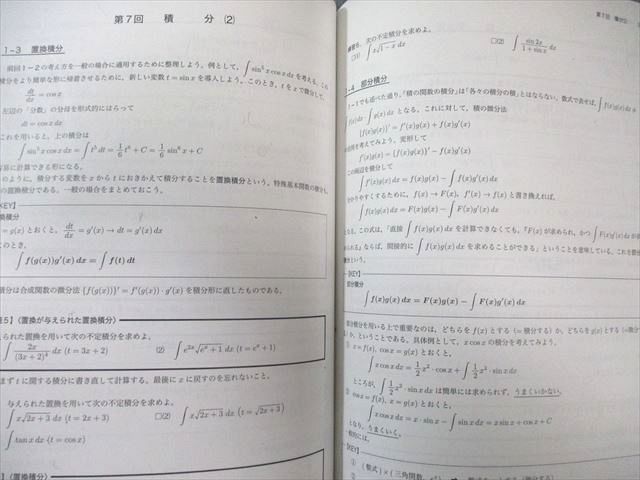 第7回 積 分 (2)
1-3 置換積分
前回1-2の考え方を一般の場合に適用するために整理しよう。例として、∫sin⁵x cos x dx を考える。この
積分をより簡単な形に帰着させるために、新しい変数 t = sin x を導入しよう。このとき、t を x で微分して、
dt/dx = cos x
左辺の「分数」の分母を形式的にはらって
dt = cos x dx
これを用いると、上の積分は
∫sin⁵x cos x dx = ∫t⁵ dt = 1/6 t⁶ + C = 1/6 sin⁶x + C
容易に計算できる形になる。
のように、積分する変数を x から t におきかえて積分することを置換積分という。特殊基本関数の積分も、
の置換積分である。一般の場合をまとめておこう。
KEY】
換積分
= g(x) とおくと、dt/dx = g'(x) → dt = g'(x) dx
このとき、
∫f(g(x))g'(x) dx = ∫f(t) dt
積分は合成関数の微分法 {f(g(x))}' = f'(g(x))・g'(x) を積分形に直したものである。
5】(置換が与えられた置換積分)
られた置換を用いて次の不定積分を求めよ。
∫2x/(3x + 2)⁴ dx (t = 3x + 2) (2) ∫e²ˣ√(eˣ + 1) dx (t = eˣ + 1)
まず t に関する積分に書き直して計算する。最後に x に戻すのを忘れないこと。
与えられた置換を用いて次の不定積分を求めよ。
∫x√(2x + 3) dx (t = 2x + 3) □(2) ∫x√(2x + 3) dx (t = √(2x + 3))
∫tan x dx (t = cos x)
】(置換積分)
第7回 積分(2)
次の不定積分を求めよ。
□(1) ∫x√(1 − x) dx □(2) ∫sin 2x/(1 + sin x) dx
1-4 部分積分
1-1でも述べた通り、「積の関数の積分」は「各々の積分の積」とはならない。数式で表せば、∫f(x)g(x)dx ≠
∫f(x) dx・∫g(x) dx となる。これに対して、積の微分法
{f(x)g(x)}' = f'(x)g(x) + f(x)g'(x)
を考えてみよう。変形して
f'(x)g(x) = {f(x)g(x)}' − f(x)g'(x)
この両辺を積分して
∫f'(x)g(x) dx = f(x)g(x) − ∫f(x)g'(x) dx
をわかりやすくするために、f(x) → F(x), f'(x) → f(x) と書き換えれば、
∫f(x)g(x) dx = F(x)g(x) − ∫F(x)g'(x) dx
となる。この式は、「直接 ∫f(x)g(x) dx を計算できなくても、「F(x) が求められ、かつ ∫F(x)g'(x) dx が
められる」ならば、間接的に ∫f(x)g(x) dx を求めることができる」ということを意味している。これを部分
積分という。
【KEY】
部分積分
∫f(x)g(x) dx = F(x)g(x) − ∫F(x)g'(x) dx
部分積分を用いる上で重要なのは、どちらを f(x) とする(= 積分する)か、どちらを g(x) とする(= 微分
か、ということである。具体例として、x cos x の積分を考えてみよう。
① x = f(x), cos x = g(x) とおくと、
∫x cos x dx = 1/2 x²・cos x + ∫1/2 x²・sin x dx
ところが、∫1/2 x²・sin x dx は簡単には求められず、うまくいかない。
② cos x = f(x), x = g(x) とおくと、
∫x cos x dx = x・sin x − ∫sin x dx = x sin x + cos x + C
となり、うまくいく。
一般的には、
【KEY】
① (整式) × (三角関数、